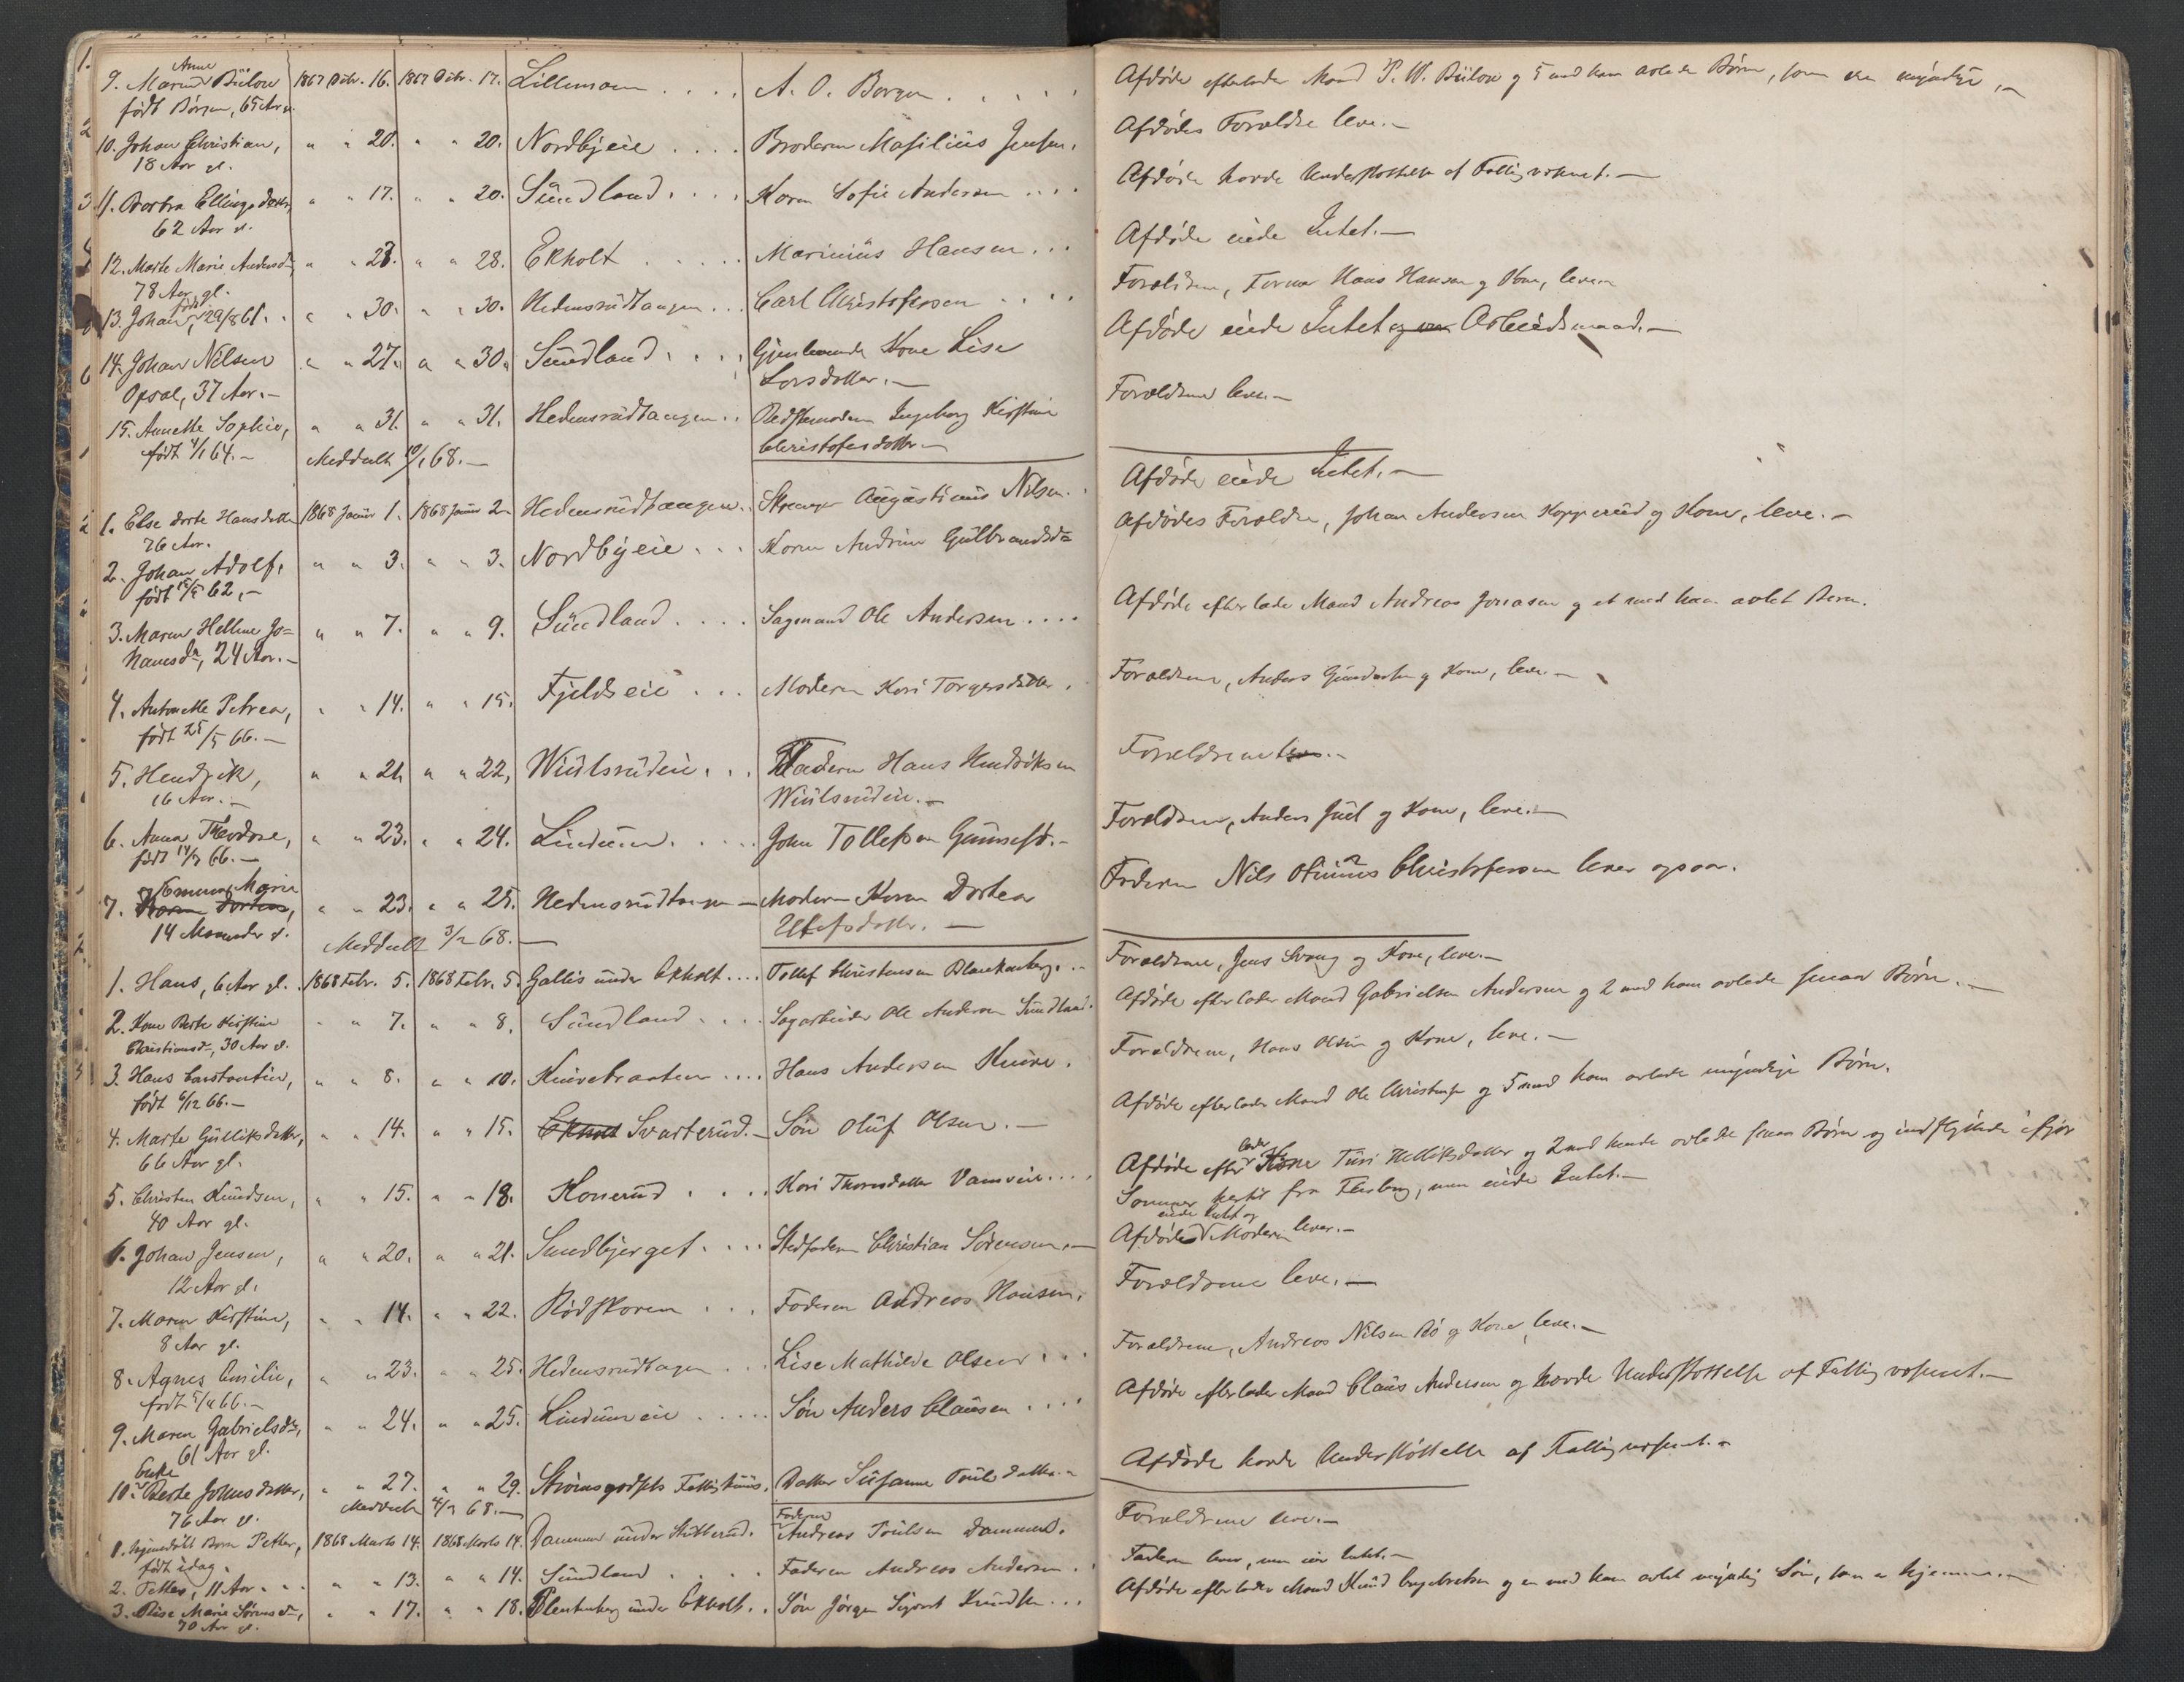 Anne
9. Maren Bülow 1867 Dcbr. 16. 1867 Dcbr. 17. Lillemoen . . . . A. O. Borgen . . . . . Afdøde efterlader Mand P. W. Bülow og 5 med ham avlede Børn, som ere myndige
født Børgen, 65 Aar
10. Johan Christian, " " 20. " " 20. Nordbyeie . . . . Broderen Masilius Jensen. Afdødes Forældre leve.
18 Aar gl.
11. Barbra Ellingsdatter, " " 17. " " 20. Sundland . . . . Karen Sofie Andersen . . . . Afdøde havde Understøttelse af Fattigvæsenet.
62 Aar gl.
12. Marte Marie Andersd. " " 23. " " 28. Ekholt . . . . . Marinius Hansen . . . Afdøde eiede Intet.
78 Aar gl.
13. Johan, født 29/8 61. . " " 30. " " 30. Hedensrudtangen . . . Carl Christofersen . . . . Forældrene, Hans Hansen og Kone, leve
14. Johan Nilsen " " 27. " " 30. Sundland . . . . Gjenlevende Kone Lise Afdøde eiede Intet og var Arbeidsmand.
Opsal, 37 Aar. Larsdatter.
15. Annette Sophie, " " 31. " " 31. Hedensrudtangen . . Bedstemoderen Ingeborg Kirstine Forældrene leve.
født 4/1 64. Christofersdatter
Meddeelt 10/1 68.
1. Else Dorte Hansdatter 1868 Januar 1. 1868 Januar 2. Hedensrudtangen . . Augustinus Nilsen . Afdøde eiede Intet.
76 Aar.
2. Johan Adolf, " " 3. " " 3. Nordbyeie . . . Karen Andrine Gulbrandsd. Afdødes Forældre, Johan Andersen Kopperud og Kone, leve.
født 62,
3. Maren Helene Jo= " " 7. " " 9. Sundland . . . . Sagmand Ole Andersen . . . . Afdøde efterlader Mand Andreas Jonasen og et med ham avlet Barn.
hanesdr, 24 Aar.
4. Antonette Petrea, " " 14. " " 15. Fjeldseie . . . Moderen Kari Torgersdatter. Forældrene, Anders Gundersen og Kone, leve.
født 25/5 66.
5. Hendrik, " " 21. " " 22, Wiulsrudeie . . . Faderen Hans Hendriksen Forældrene leve.
16 Aar. Wiulsrudeie.
6. Anna Theodore, " " 23. " " 24. Lindum . . . . . John Tollefsen Forældrene, Anders Juel og Kone, leve.
født 14/2 66.
Emma Marie
7. Karen Dortea, " " 23. " " 25. Hedensrudtangen Moderen Karen Dortea Faderen Nils Christofersen lever ogsaa.
14 Maaneder gl. Ellefsdatter.
Meddeelt 3/2 68.
1. Hans, 6 Aar gl. . 1868 Febr. 5. 1868 Febr. 5. Gallis under Ekholt . . . . Tollef Christensen Blankenberg . . Forældrene, Jens Svang og Kone, leve.
2. Kone Berte Kirstine " " 7. " " 8. Sundland . . . . Sagarbeider Ole Andersen Sundland. Afdøde efterlader Mand Gabrielsen Andersen og 2 med ham avlede smaa Børn.
Christiansd., 30 Aar gl.
3. Hans Constantin, " " 8. " " 10. Knivebraaten . . . . Hans Andersen Knive. Forældrene, Hans Olsen og Kone, leve.
født 6/12 66.
4. Marte Gulliksdatter, " " 14. " " 15. Ekholt Svarterud. Søn Oluf Olsen. Afdøde efterlader Mand Ole Christensen og 5 med ham avlede myndige Børn.
66 Aar gl.
5. Christen Knudsen, " " 15. " " 18. Konerud . . . . Kari Thorsdatter Vamseie . . . . Afdøde efterlader Kone Turi Helliksdatter og 2 med hende avlede smaa Børn og indflyttede ifjor
40 Aar gl. Sommer hertil fra Flesberg, men eiede Intet.
6. Johan Jensen, " " 20. " " 21. Sundbjerget . . . . Stedfaderen Christian Sørensen. Afdøde eiede Intet og Moderen lever.
12 Aar gl.
7. Maren Kirstine, " " 14. " " 22. Rødskoren . . . Faderen Andreas Hansen. Forældrene leve.
8 Aar gl.
8. Agnes Emilie, " " 23. " " 25. Hedensrudtagen . . . Lise Mathilde Olsen . . . Forældrene, Andreas Nilsen Bø og Kone leve.
født 66.
9. Maren Gabrielsdr, " " 24. " " 25. Lindumeie . . . . . Søn Anders Clausen . . . . Afdøde efterlader Mand Claus Andersen og havde Understøttelse af Fattigvæsenet.
61 Aar gl.
Enke
10. Berte Johnsdatter, " " 27. " " 29. Strømsgodsets Fattighuus. Datter Susanne Poulsdatter. Afdøde havde Understøttelse af Fattigvæsenet.
76 Aar gl. Meddeelt 4/3 68.
1. hjemmedøbt Barn Petter, 1868 Marts 14. 1868 Marts 14. Dammen under Stubberud. Faderen Andreas Poulsen Dammen. Forældrene leve.
født idag.
2. Petter, 11 Aar . . . " " 13. " " 14. Sundland . . . . Faderen Andreas Andersen . . Faderen lever, men eier Intet.
3. Lise Marie Sørensdr, " " 17. " " 18. Blankenberg under Ekholt. . Søn Jørgen Knudsen . . . Afdøde efterlader Mand Knud Engebretsen og en med ham avlet myndig Søn, som er hjemme.
70 Aar gl.